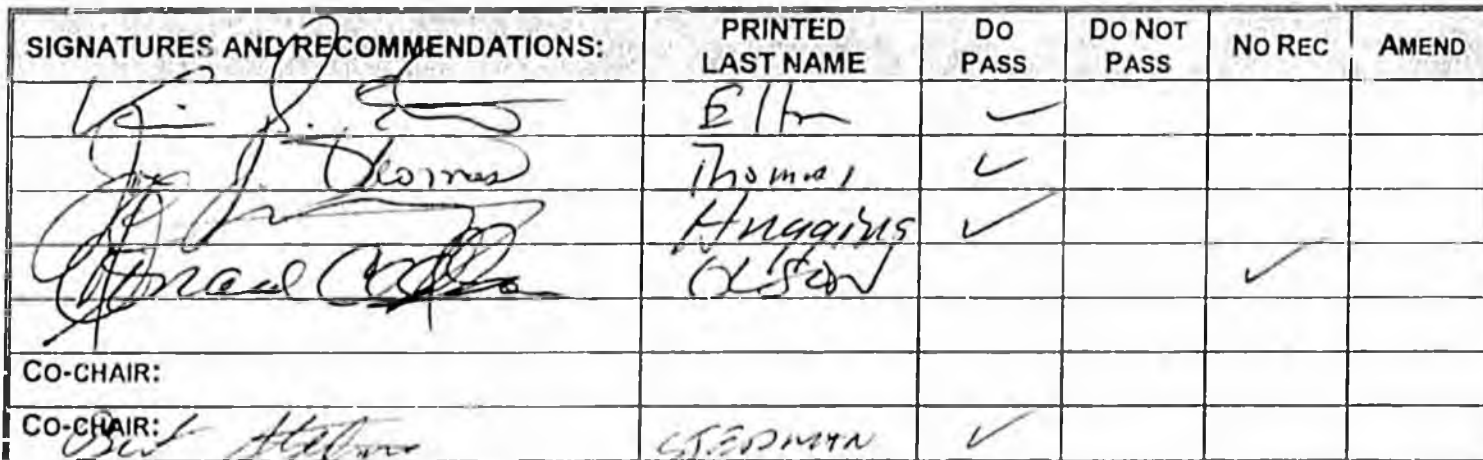 SIGNATURES AND RECOMMENDATIONS: PRINTED LAST NAME DO PASS DO NOT PASS NO REC AMEND
Elton ✓
Thomas Thomas ✓
Huggins ✓
Donald Olson Olson ✓
CO-CHAIR:
CO-CHAIR: Bert Stedman STEDMAN ✓